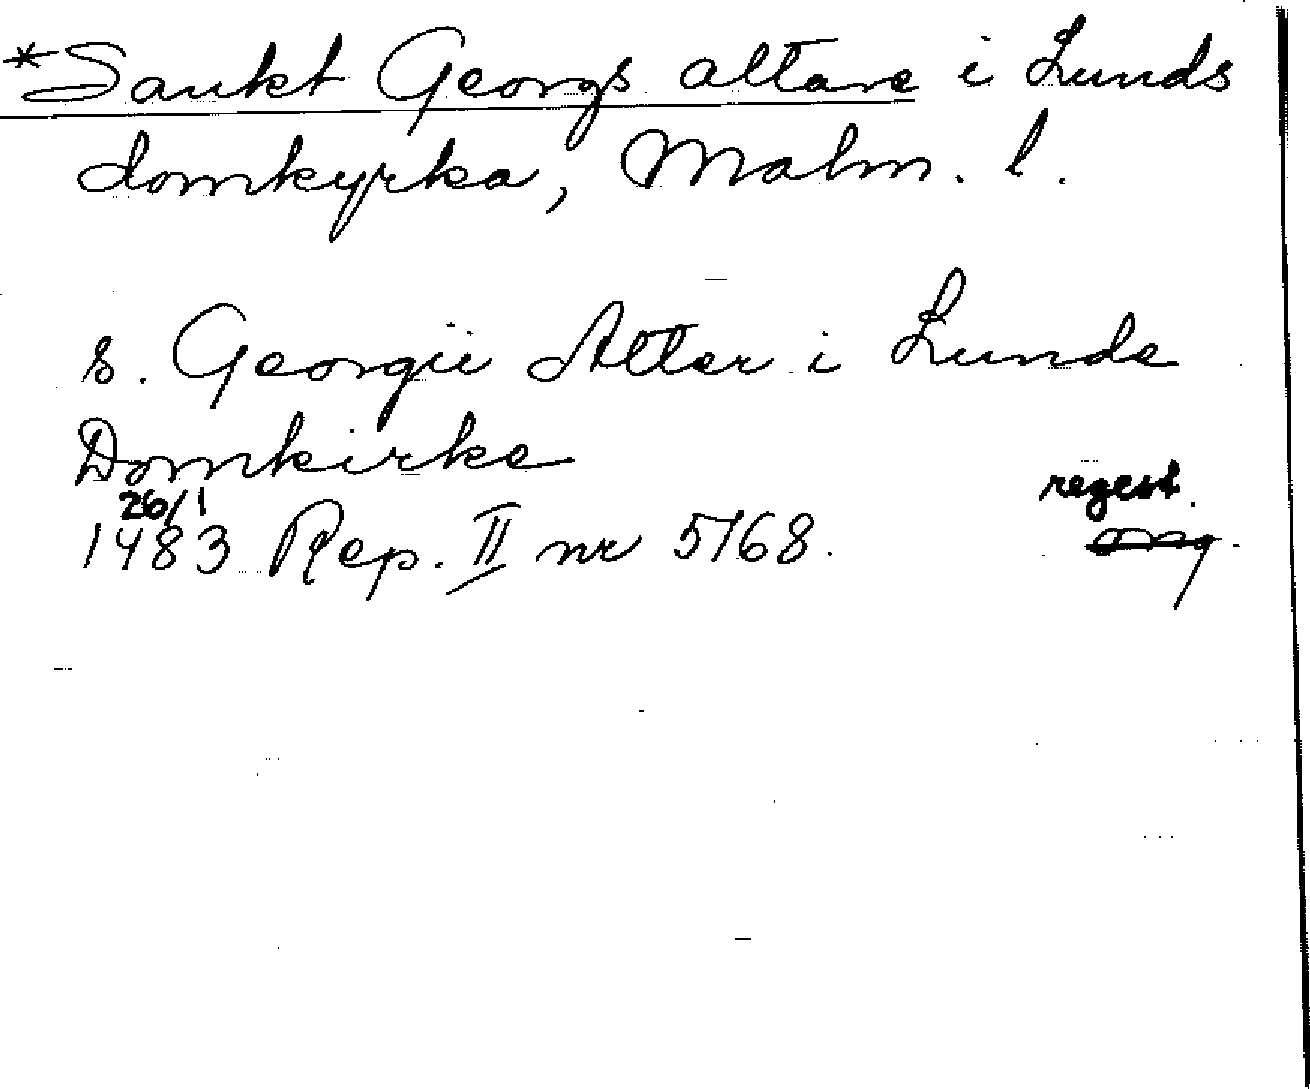 *Sankt Georgs altare i Lunds
domkyrka, Malm. l.
s. Georgii Alter i Lunde
Domkirke
26/1
1483 Rep. II nr 5768.
regest.